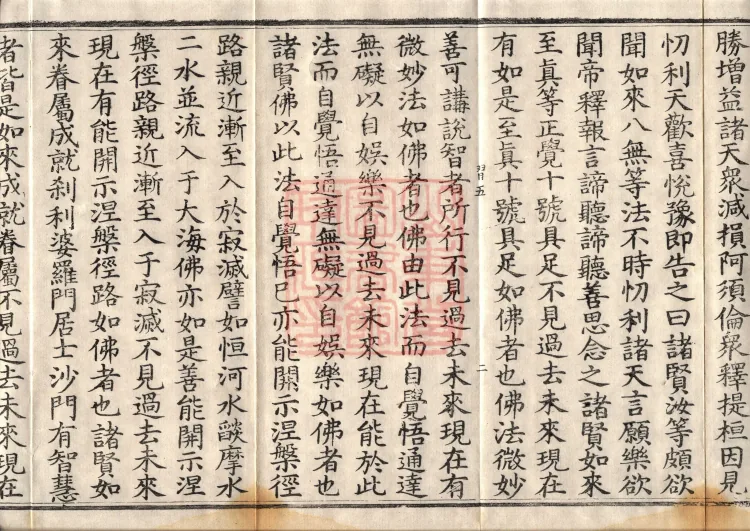 勝增益諸天衆減損阿須倫衆釋提桓因見
忉利天歡喜悅豫即告之曰諸賢汝等頗欲
聞如來八無等法不時忉利諸天言願樂欲
聞帝釋報言諦聽諦聽善思念之諸賢如來
至眞等正覺十號具足不見過去未來現在
有如是至眞十號具足如佛者也佛法微妙
善可講說智者所行不見過去未來現在有
微妙法如佛者也佛由此法而自覺悟通達
無礙以自娛樂不見過去未來現在能於此
法而自覺悟通達無礙以自娛樂如佛者也
諸賢佛以此法自覺悟已亦能開示涅槃徑
路親近漸至入於寂滅譬如恒河水燄摩水
二水並流入于大海佛亦如是善能開示涅
槃徑路親近漸至入于寂滅不見過去未來
現在有能開示涅槃徑路如佛者也諸賢如
來眷屬成就刹利婆羅門居士沙門有智慧
者皆是如來成就眷屬不見過去未來現在